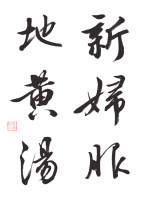 新婦服
地黄湯